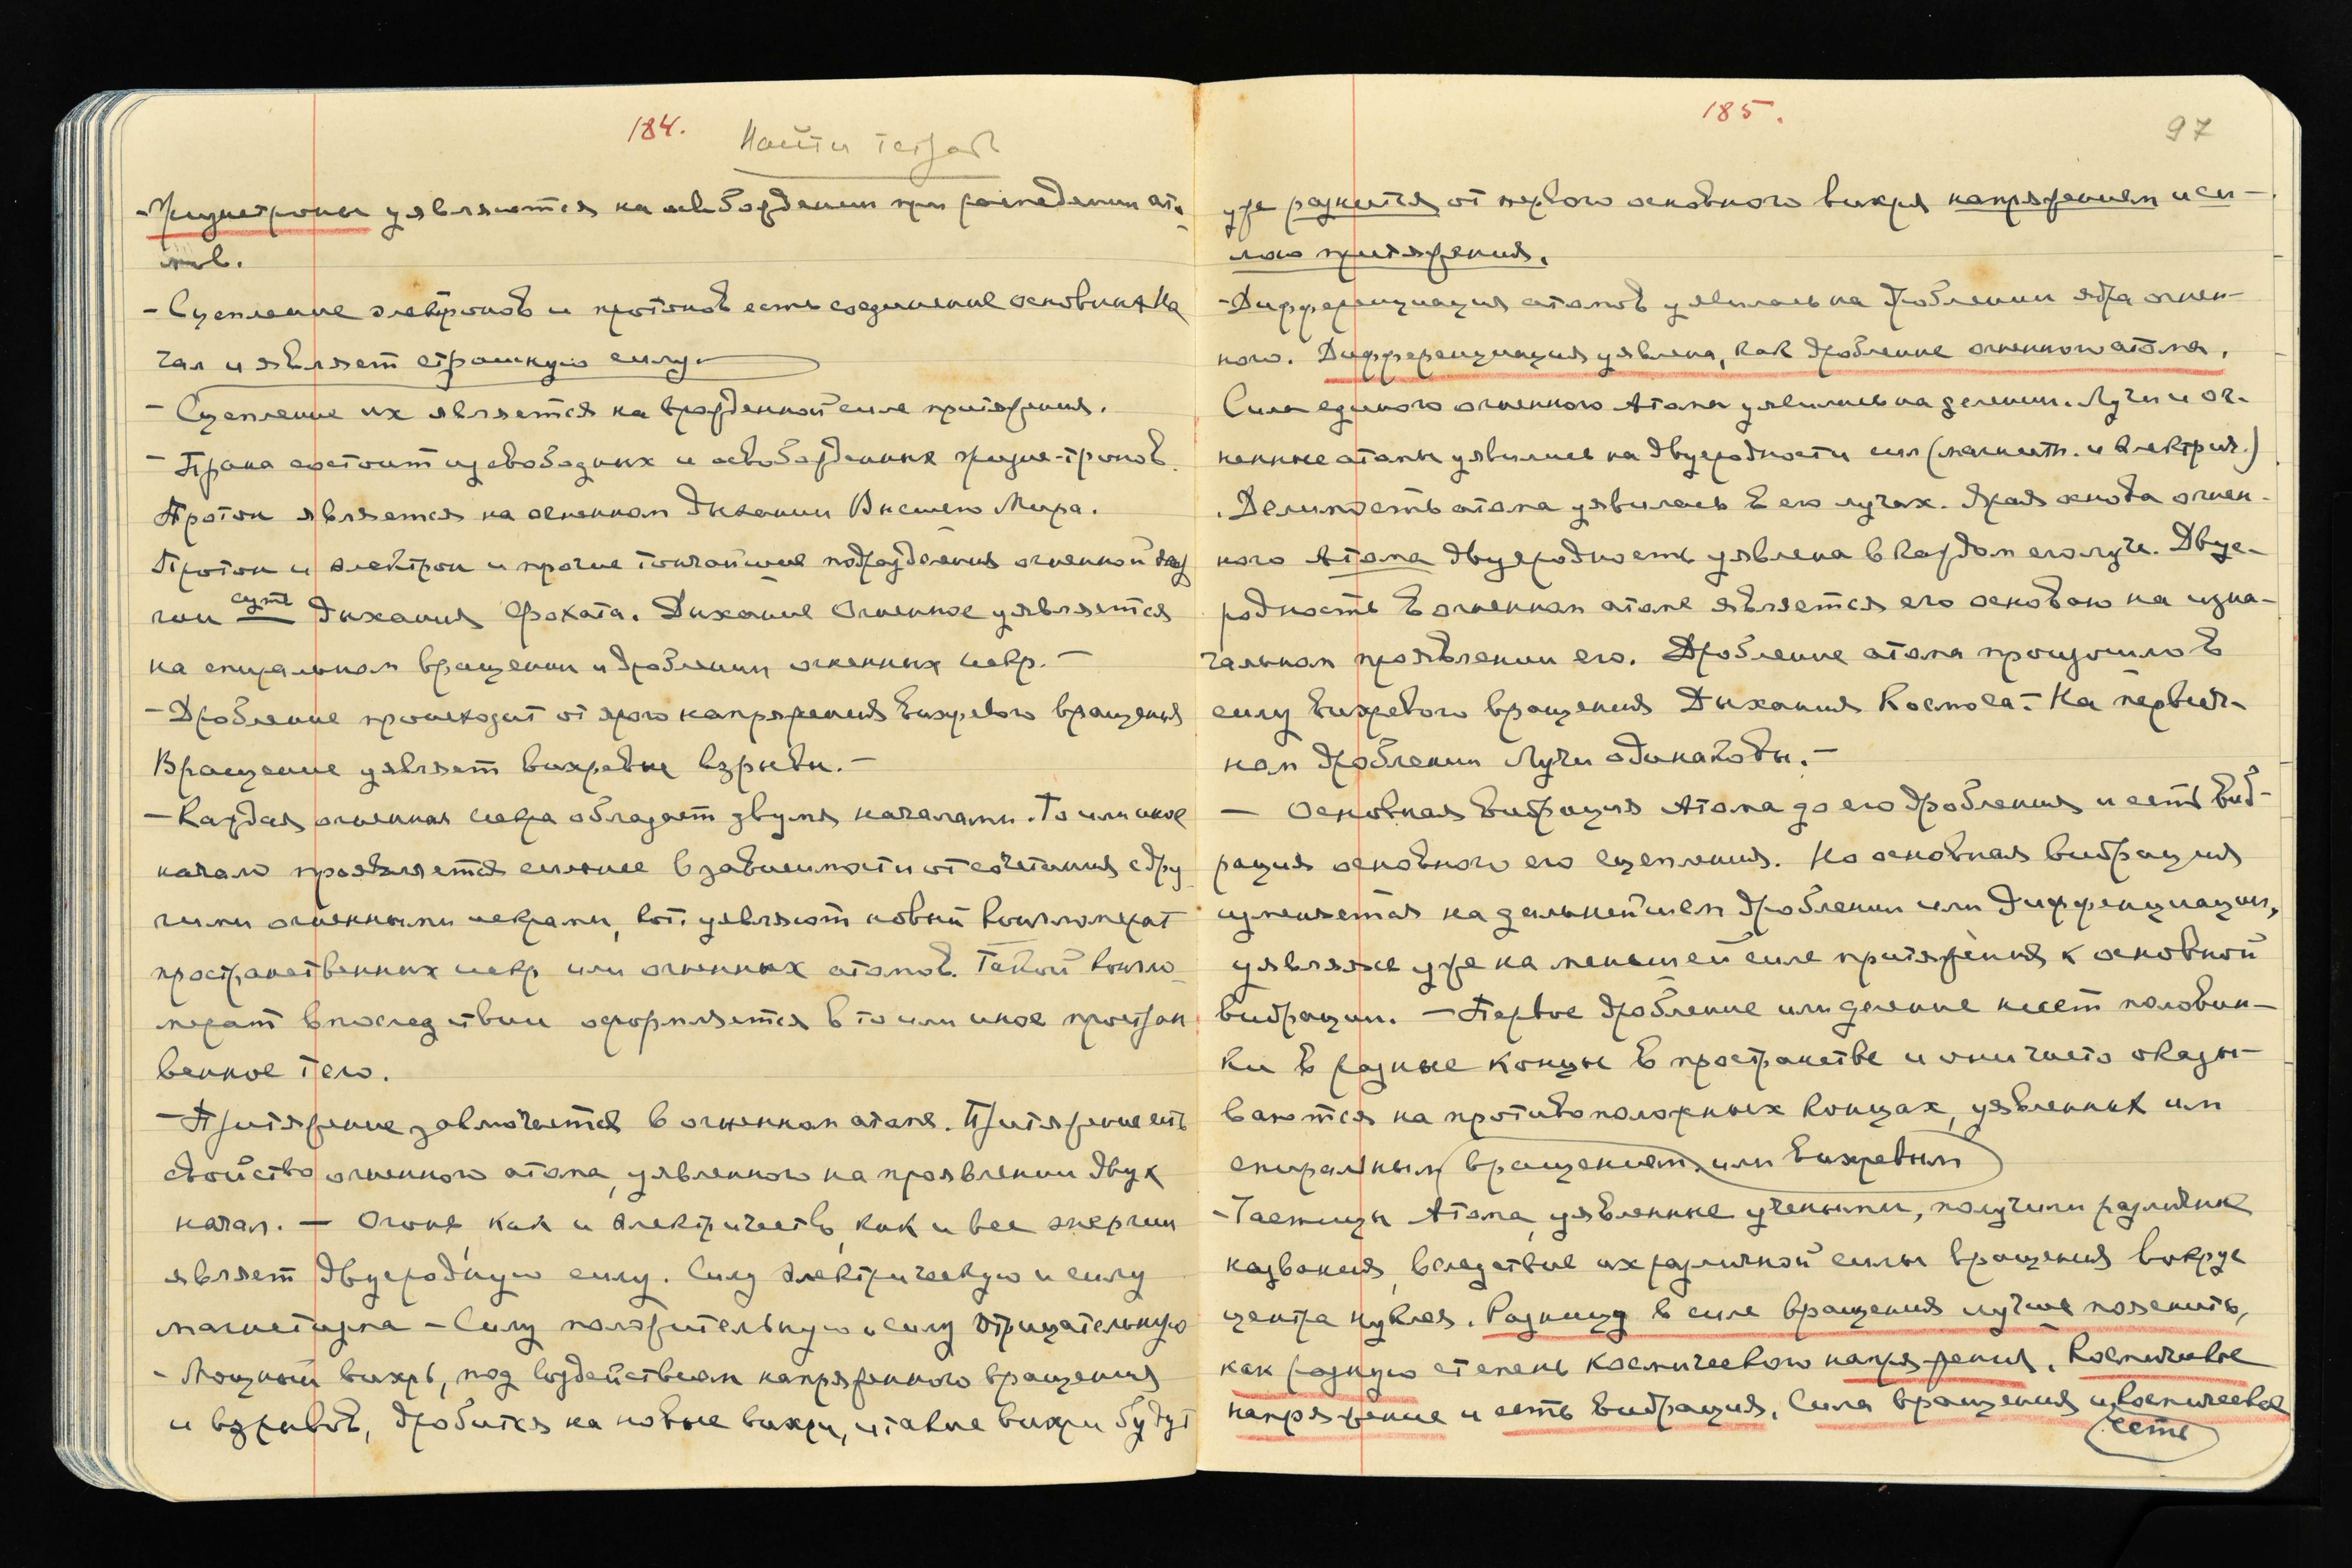 184.
Найти тетрадь
- Жизнетроны уявляются на освобождении при распадении ато-
мов.
- Сцепление электронов и протонов есть соединение основных На
чал и являет страшную силу.
- Сцепление их является на врожденной силе притяжения.
- Прана состоит из свободных и освобожденных жизне-тронов.
Протон является на огненном дыхании Высшего Мира.
Протон и электрон и прочие тончайшие подразделения огненной энер
гии суть дыхания Фохата. Дыхание Огненное уявляется
на спиральном вращении и дроблении огненных искр. -
- Дробление происходит от ярого напряжения вихревого вращения
Вращение уявляет вихревые взрывы. -
- Каждая огненная искра обладает двумя началами. То или иное
начало проявляется сильнее в зависимости от сочетания с дру
гими огненными искрами, кот. уявляют новый конгломерат
пространственных искр или огненных атомов. Такой конгло-
мерат впоследствии оформляется в то или иное простран
венное тело.
- Притяжение заключается в огненном атоме. Притяжение есть
свойство огненного атома, уявленного на проявлении двух
начал. - Огонь как и электричество, как и все энергии
являет двуеродную силу. Силу электрическую и силу
магнетизма - Силу положительную и силу отрицательную
- Мощный вихрь, под воздействием напряженного вращения
и взрывов, дробится на новые вихри, и такие вихри будут
185.
97
уже разниться от первого основного вихря напряжением и си-
лою притяжения.
- Дифференциация атомов уявилась на дроблении ядра огнен-
ного. Дифференциация уявлена, как дробление огненного атома.
Сила единого огненного Атома уявилась на делении. Лучи и ог-
ненные атомы уявились на двуеродности сил (магнитн. и электрич.)
. Делимость атома уявилась в его лучах. Ярая основа огнен-
ного Атома двуеродность уявлена в каждом его луче. Двуе-
родность в огненном атоме является его основою на изна-
чальном проявлении его. Дробление атома произошло в
силу вихревого вращения Дыхания Космоса. - На первич-
ном дроблении Лучи одинаковы. -
- Основная вибрация Атома до его дробления и есть виб-
рация основного его сцепления. Но основная вибрация
изменяется на дальнейшем дроблении или дифференциации,
уявляясь уже на меньшей силе притяжения к основной
вибрации. - Первое дробление или деление несет половин-
ки в разные концы в пространстве и они часто оказы-
ваются на противоположных концах, уявленных им
спиральным вращением, или вихревым
- Частицы Атома, уявленные учеными, получили различные
названия, вследствие их различной силы вращения вокруг
центра нуклея. Разницу в силе вращения лучше пояснить,
как разную степень космического напряжения. Космическое
напряжение и есть вибрация. Сила вращения и космическое
есть